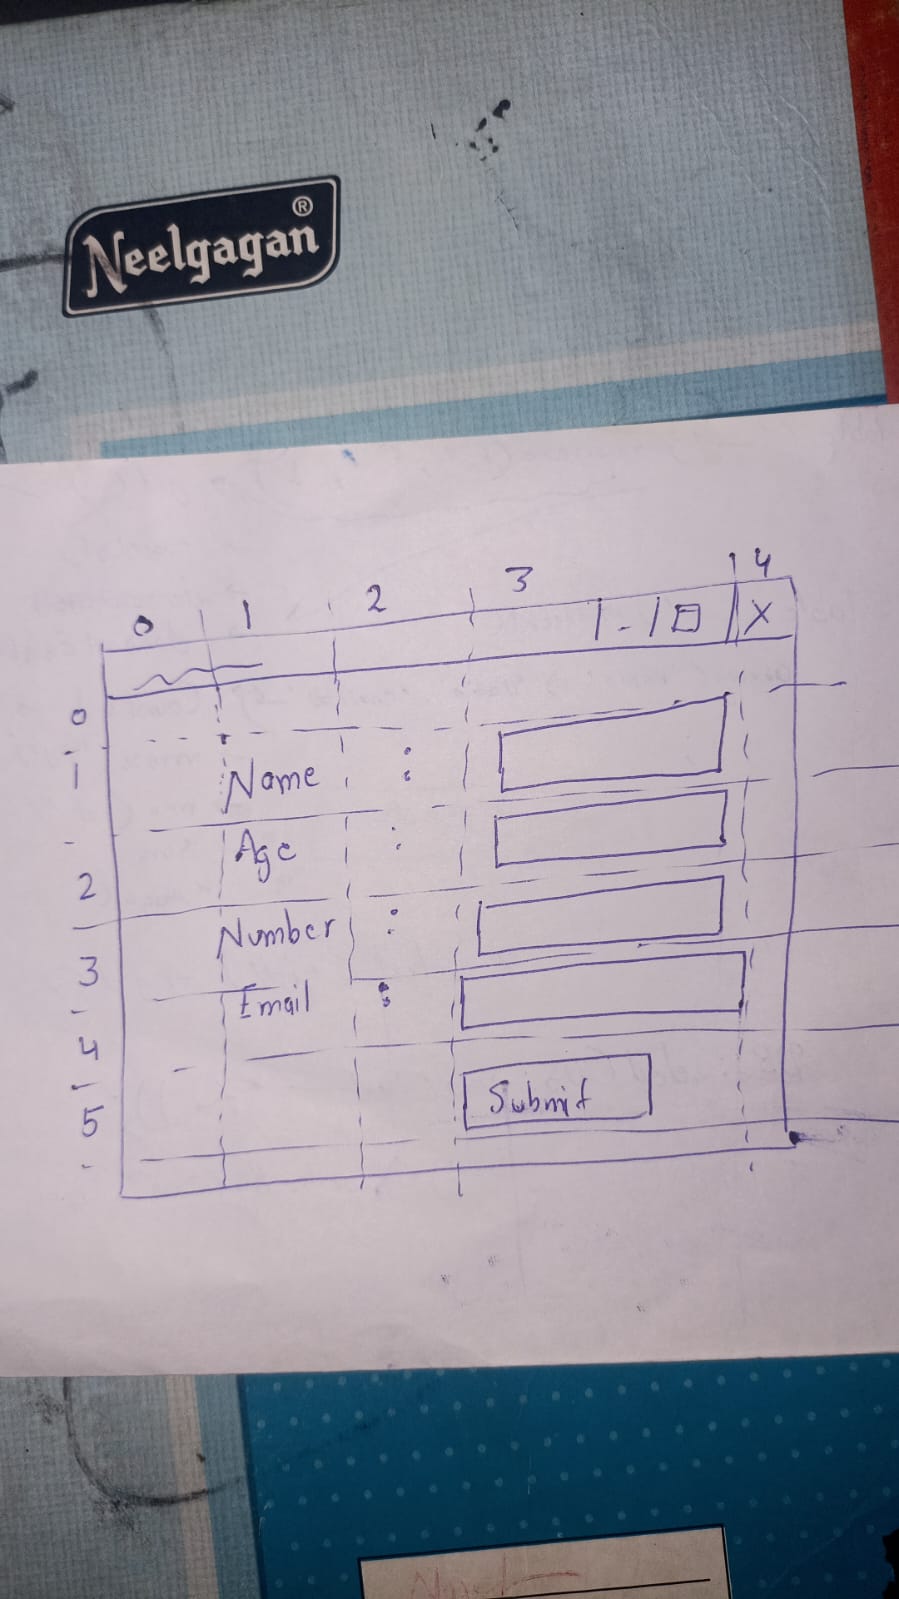 Neelgagan®
0 1 2 3 4
- X
0
1 Name :
Age :
2
Number :
3
Email :
4
Submit
5